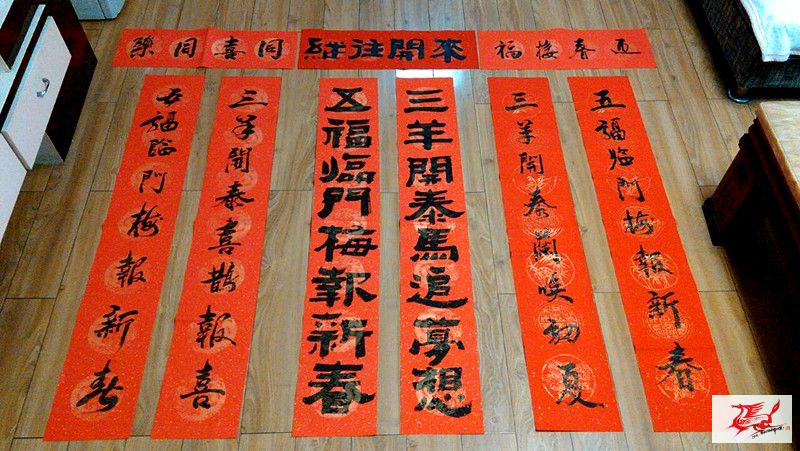 同喜同樂
継往開來
迎春接福
五福臨門梅報新春
三羊開泰蘭喚初夏
三羊開泰馬追夢想
五福臨門梅報新春
三羊開泰喜鵲報喜
五福臨門梅報新春